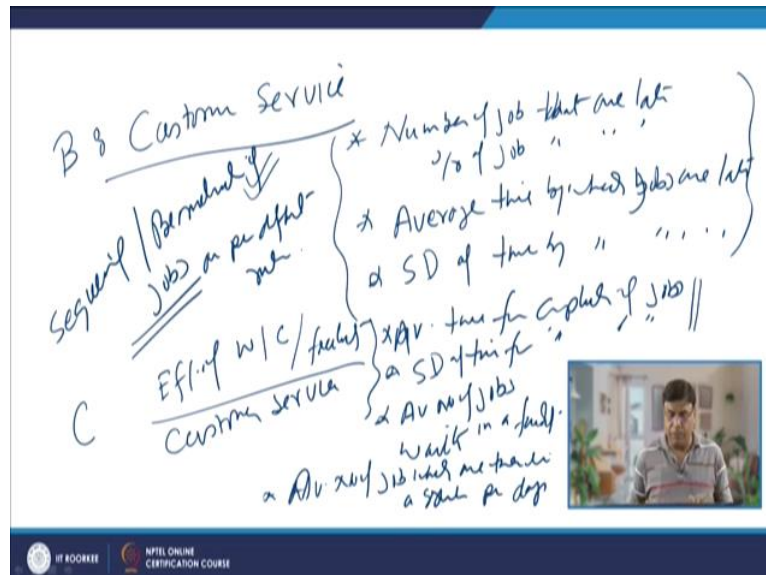 B & Custom Service
Sequencing / of
jobs as per
rule.
* Number of job that are late
% of job " " "
* Average time by which jobs are late
* SD of time by " " " . . .
C Eff. of W/C /
Custom Service
* Av. time for of jobs
* SD of time for " " "
* Av no of jobs
wait in a
* Av. no of job which are there in
a per day
IIT ROORKEE
NPTEL ONLINE
CERTIFICATION COURSE